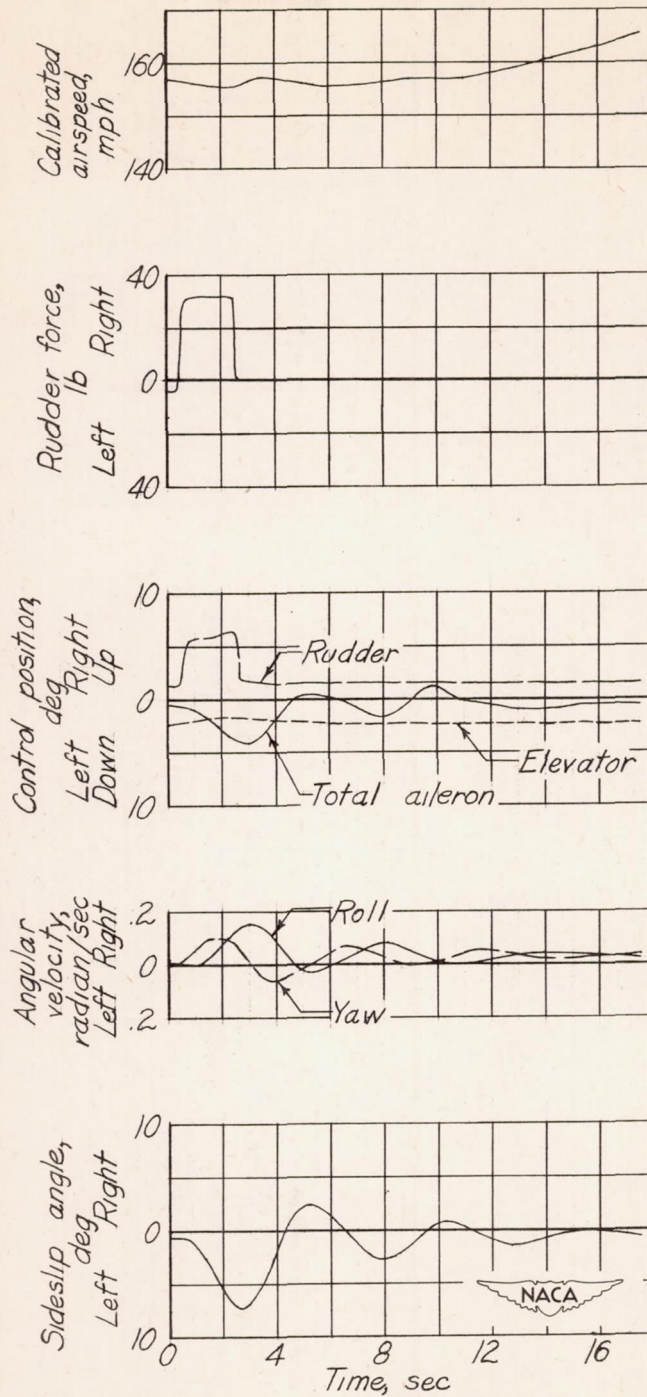 Calibrated
airspeed,
mph
160
140
Rudder force,
lb
Left Right
40
0
40
Control position,
deg
Left Right
Down Up
10
0
10
Rudder
Elevator
Total aileron
Angular
velocity,
radian/sec
Left Right
.2
0
.2
Roll
Yaw
Sideslip angle,
deg
Left Right
10
0
10
NACA
0 4 8 12 16
Time, sec